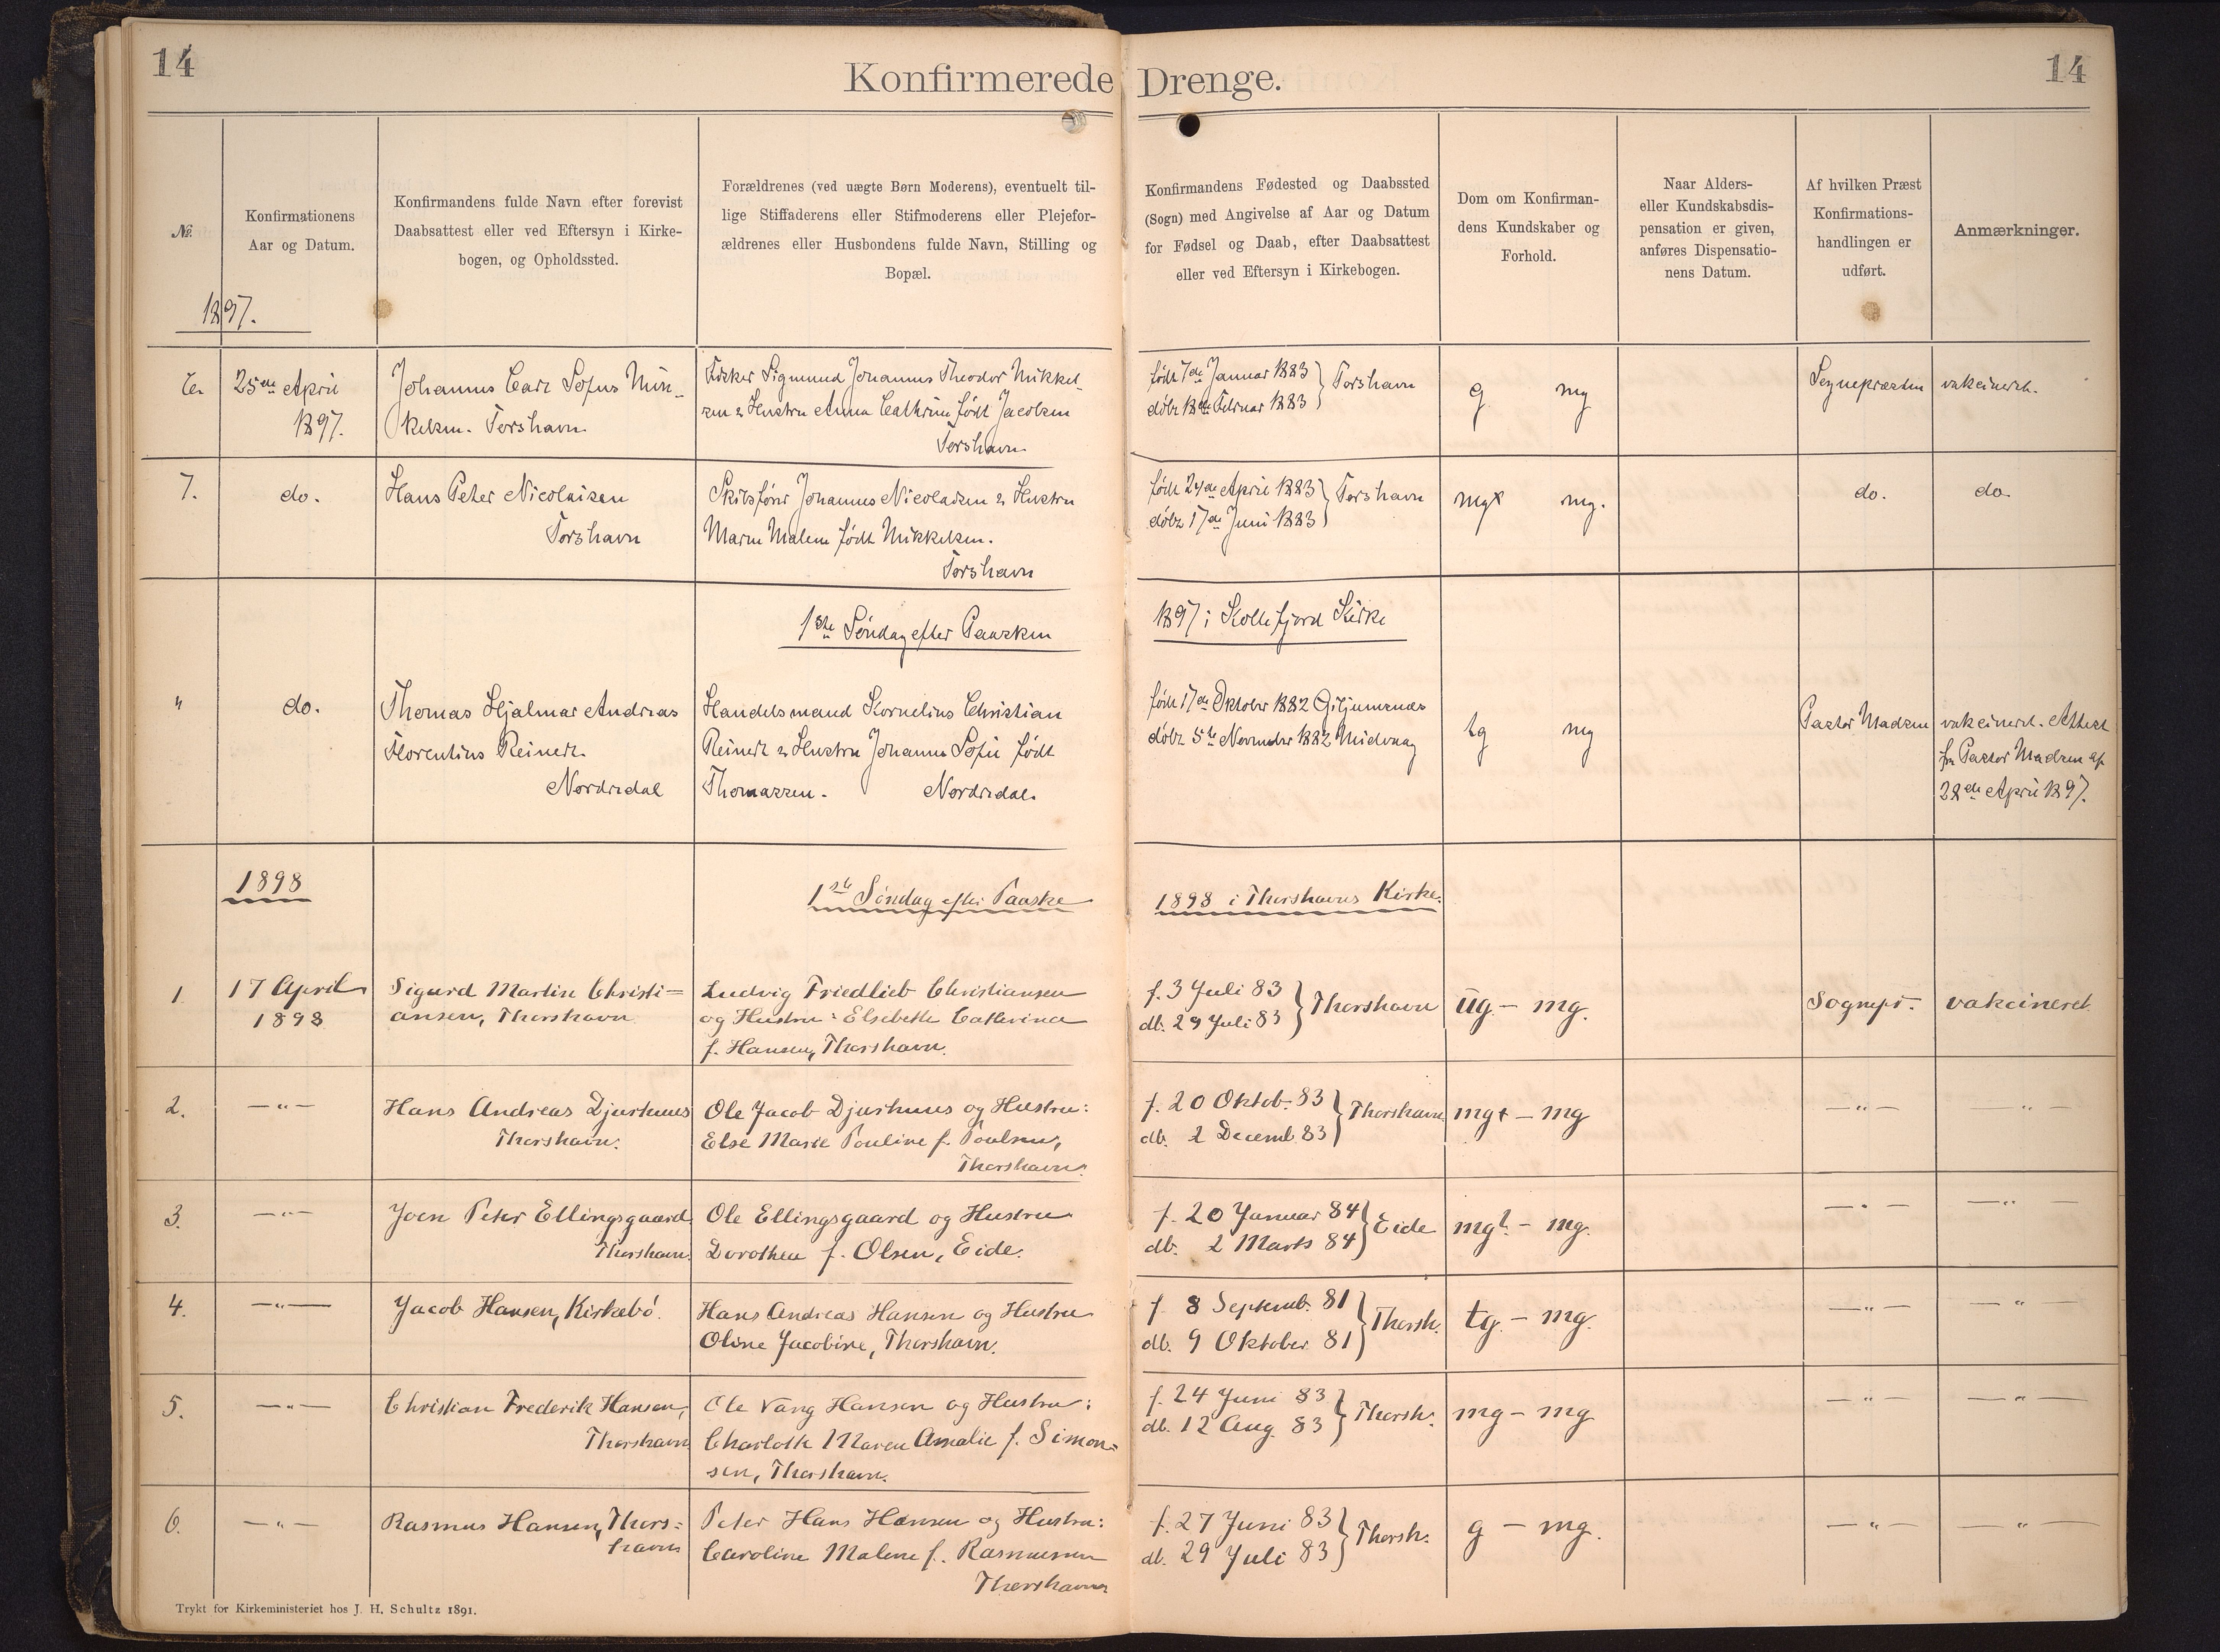 14
Konfirmerede Drenge.
14
№
Konfirmationens
Aar og Datum.
Konfirmandens fulde Navn efter forevist
Daabsattest eller ved Eftersyn i Kirke-
bogen, og Opholdssted.
Forældrenes (ved uægte Børn Moderens), eventuelt til-
lige Stiffaderens eller Stifmoderens eller Plejefor-
ældrenes eller Husbondens fulde Navn, Stilling og
Bopæl.
Konfirmandens Fødested og Daabssted
(Sogn) med Angivelse af Aar og Datum
for Fødsel og Daab, efter Daabsattest
eller ved Eftersyn i Kirkebogen.
Dom om Konfirman-
dens Kundskaber og
Forhold.
Naar Alders-
eller Kundskabsdis-
pensation er given,
anføres Dispensatio-
nens Datum.
Af hvilken Præst
Konfirmations-
handlingen er
udført.
Anmærkninger.
1897.
25de April
1897.
Johannes Carl Sofus Mik-
kelsen. Torshavn
Fisker Sigmund Johannes Theodor Mikkel-
sen & Hustru Anna Cathrine født Jacobsen
Torshavn
født 7de Januar 1883
døbt 18de Februar 1883
Torshavn
g mg
Sognepræsten
vakcineret.
7.
do.
Hans Peter Nicolaisen
Torshavn
Skibsfører Johannes Nicolaisen & Hustru
Maren Malene født Mikkelsen.
Torshavn
født 24de April 1883
døbt 17de Juni 1883
Torshavn
mgx mg.
do.
do.
1ste Søndag efter Paasken
1897 i Kollefjord Kirke
"
do.
Thomas Hjalmar Andreas
Florentius Reinert.
Nordredal
Handelsmand Kornelius Christian
Reinert & Hustru Johanne Sofie født
Thomassen. Nordredal.
født 17de Oktober 1882 Giljumsnæs
døbt 5te November 1882 Midvaag
tg mg
Pastor Madsen
vakcineret. Attest
fra Pastor Madsen af
28de April 1897.
1898
1ste Søndag efter Paaske
1898 i Thorshavns Kirke.
1.
17 April
1898
Sigurd Martin Christi=
ansen, Thorshavn
Ludvig Friedlieb Christiansen
og Hustru: Elsebeth Catherina
f. Hansen, Thorshavn.
f. 3 Juli 83
db. 29 Juli 83
Thorshavn
ug - mg.
Sognepr.
vakcineret.
2.
— " —
Hans Andreas Djurhuus
Thorshavn.
Ole Jacob Djurhuus og Hustru:
Else Marie Pouline f. Poulsen,
Thorshavn.
f. 20 Oktob. 83
db. 2 Decemb 83
Thorshavn
mg+ - mg
— " —
— " —
3.
— " —
Joen Peter Ellingsgaard
Thorshavn.
Ole Ellingsgaard og Hustru
Dorothea f. Olsen, Eide.
f. 20 Januar 84
db. 2 Marts 84
Eide
mg? - mg.
— " —
— " —
4.
— " —
Jacob Hansen, Kirkebø.
Hans Andreas Hansen og Hustru
Oline Jacobine, Thorshavn.
f. 8 Septemb. 81
db. 9 Oktober 81
Thorsh.
tg. - mg.
— " —
— " —
5.
— " —
Christian Frederik Hansen,
Thorshavn
Ole Vang Hansen og Hustru:
Charlotte Maren Amalie f. Simon=
sen, Thorshavn.
f. 24 Juni 83
db. 12 Aug. 83
Thorsh.
mg - mg
— " —
— " —
6.
— " —
Rasmus Hansen, Thors=
havn
Peter Hans Hansen og Hustru:
Caroline Malene f. Rasmussen
Thorshavn
f. 27 Juni 83
db. 29 Juli 83
Thorsh.
g - mg.
— " —
— " —
Trykt for Kirkeministeriet hos J. H. Schultz 1891.